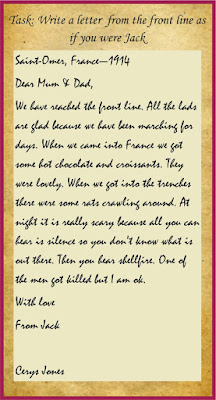 Task: Write a letter from the front line as
if you were Jack
Saint-Omer, France—1914
Dear Mum & Dad,
We have reached the front line. All the lads
are glad because we have been marching for
days. When we came into France we got
some hot chocolate and croissants. They
were lovely. When we got into the trenches
there were some rats crawling around. At
night it is really scary because all you can
hear is silence so you don't know what is
out there. Then you hear shellfire. One of
the men got killed but I am ok.
With love
From Jack
Cerys Jones